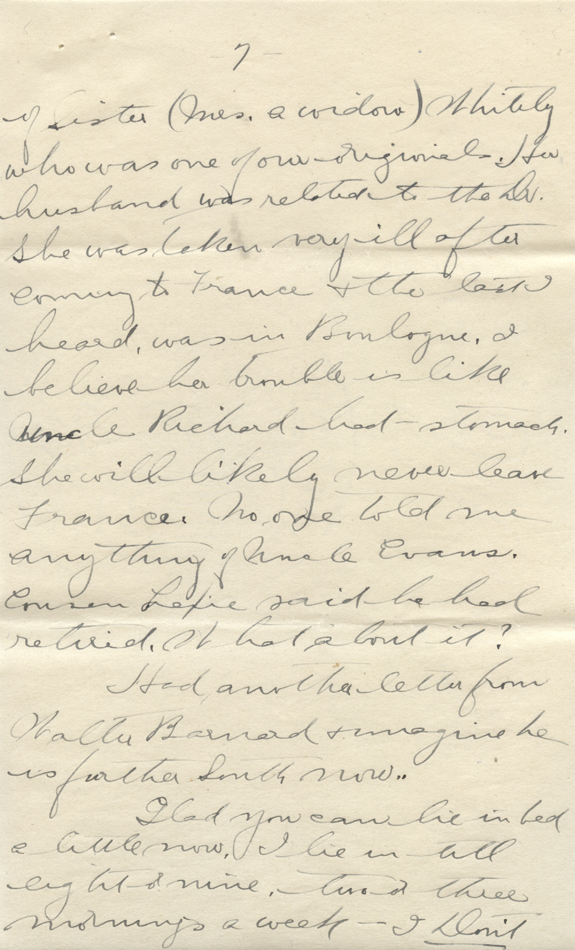 - 7 -
of Sister (Mrs. a widow) Whitely
who was one of our originals. Her
husband was related to the Dr.
She was taken very ill after
coming to France & the last I
heard, was in Boulogne. I
believe her trouble is like
Uncle Richard had - stomach.
She will likely never leave
France. No one told me
anything of Uncle Evans.
Cousen said he had
retired. What about it?
Had another letter from
Walter Barnard & imagine he
is further South now..
Glad you can lie in bed
a little now. I lie in till
eight & nine, two & three
mornings a week - I Don't